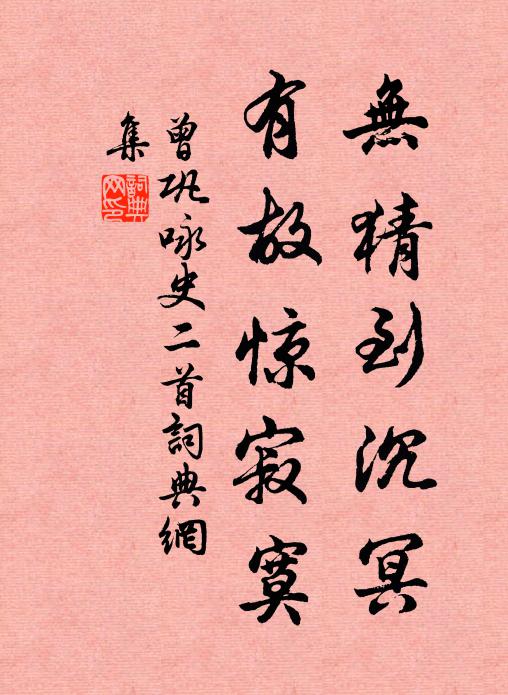 無猜到沉冥
有故惊寂寞
曾巩咏史二首詞典網
集
詞典
网印